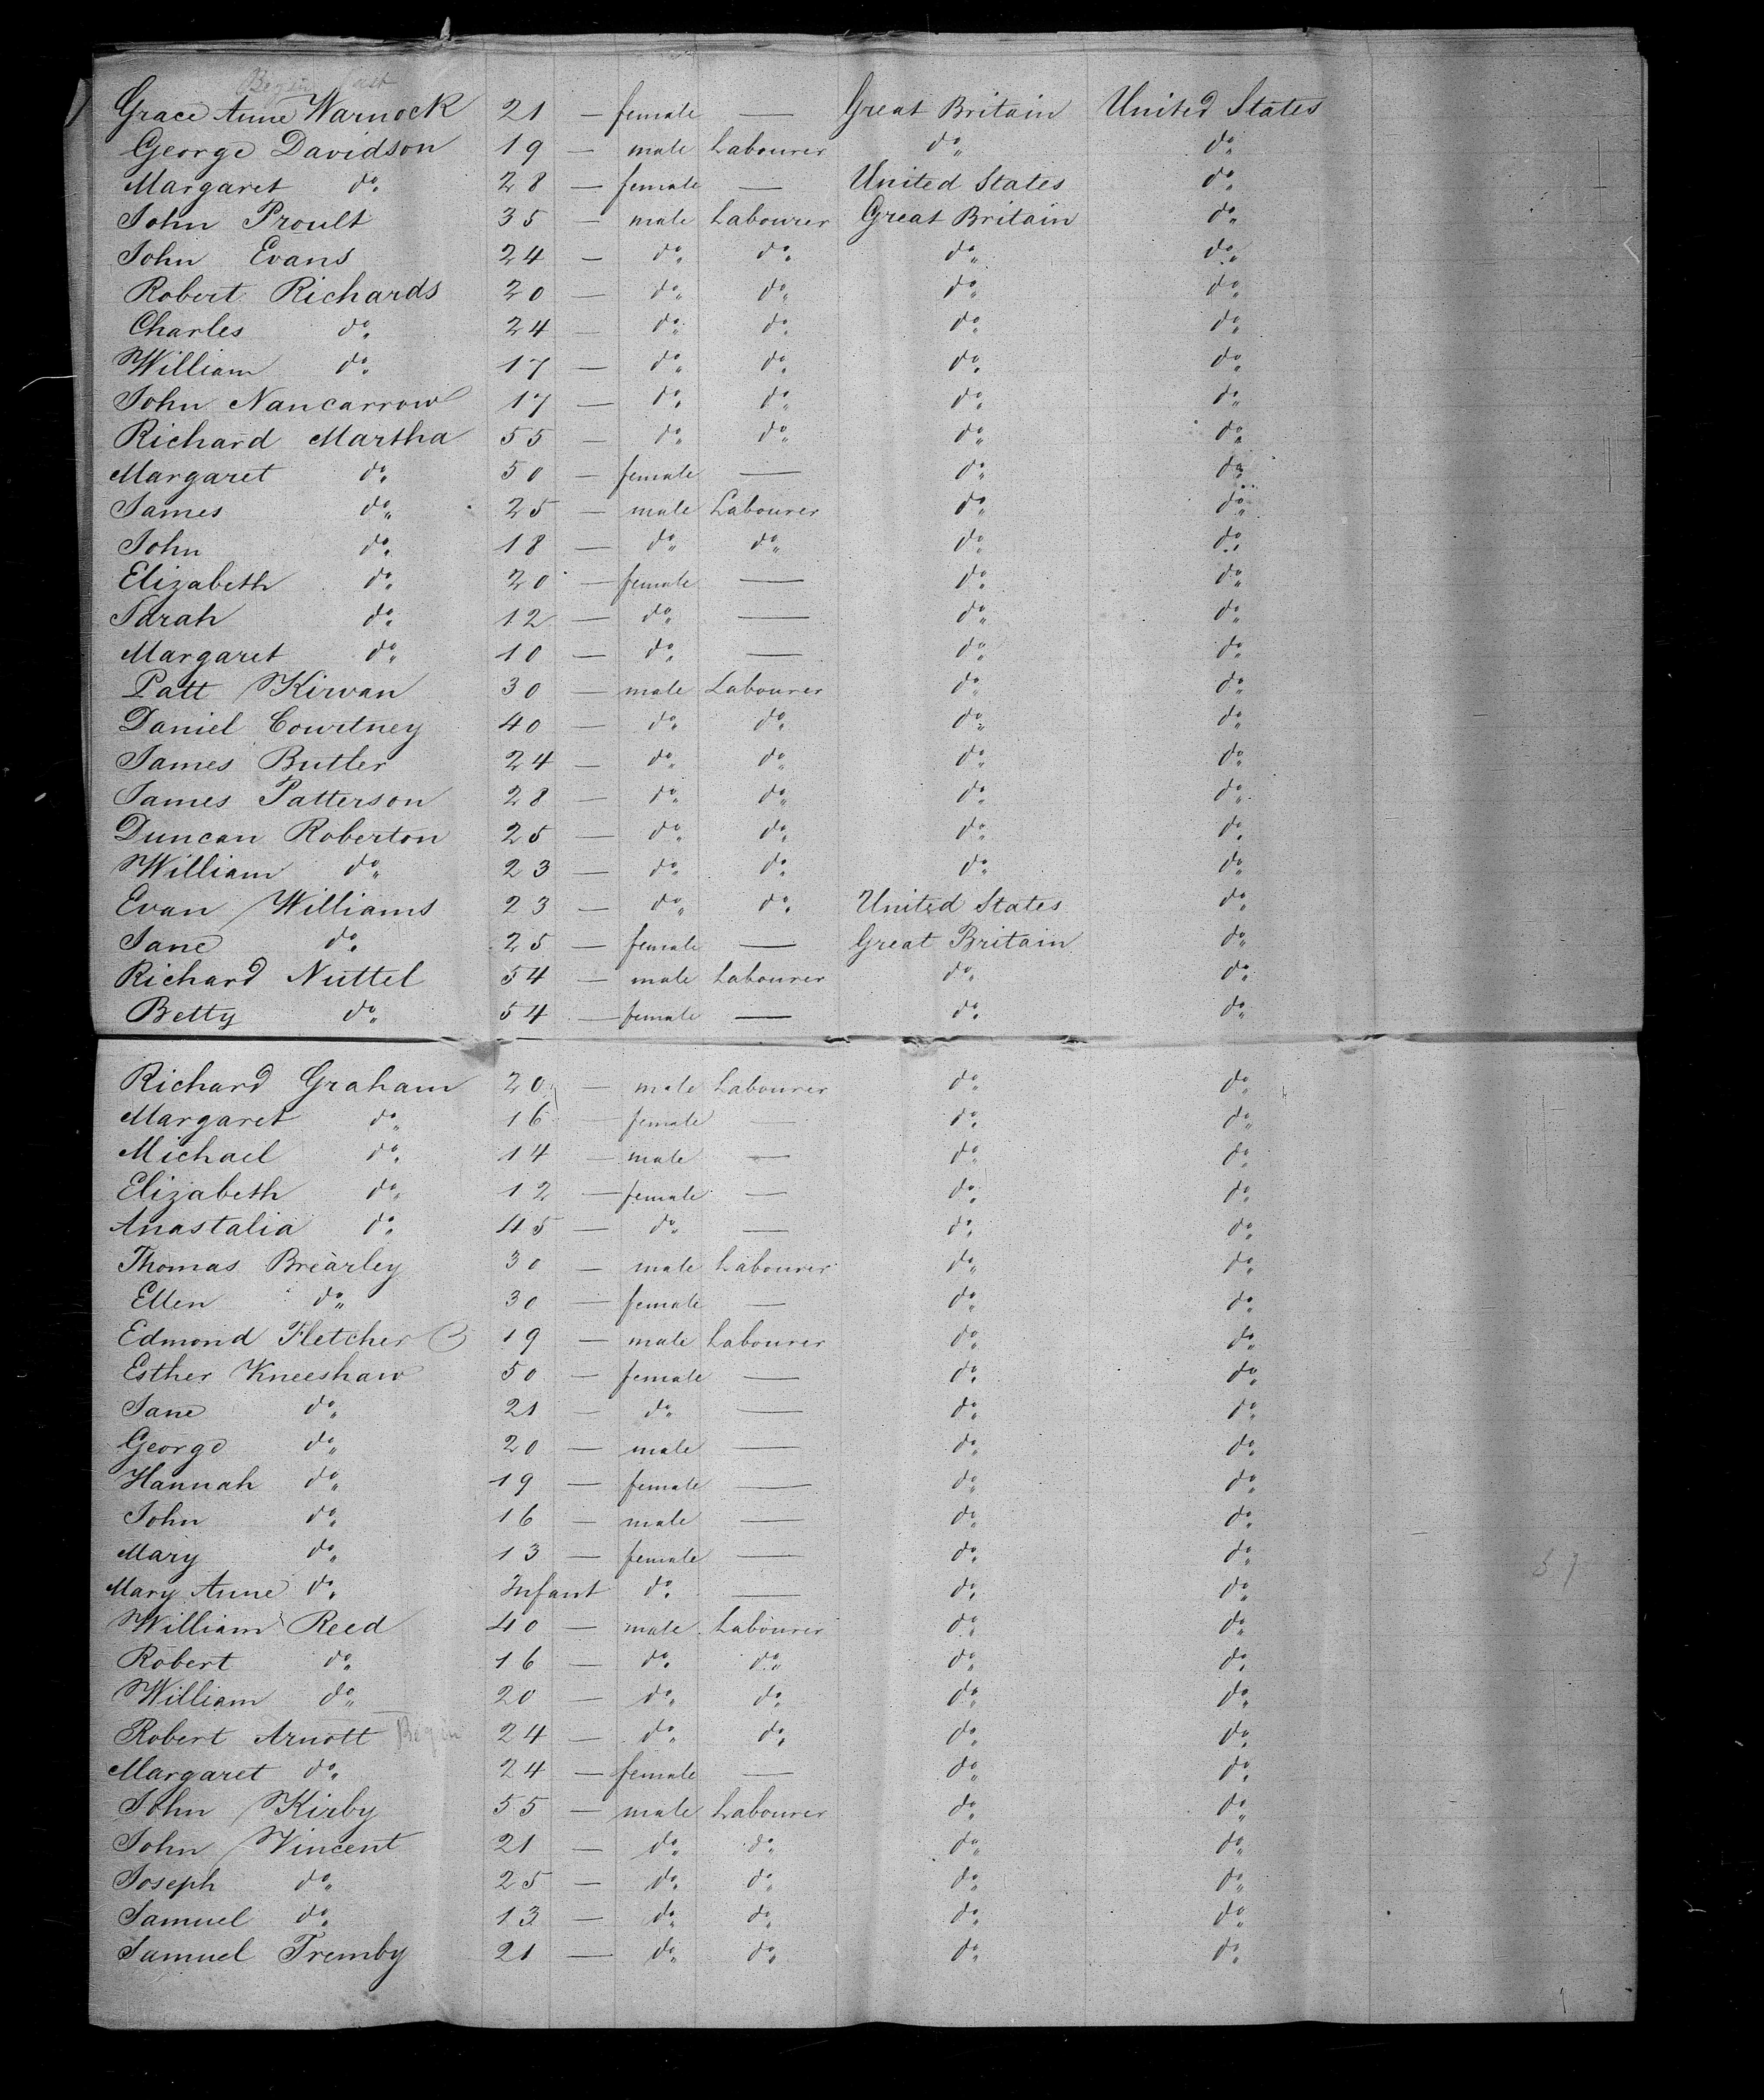 Begin last
Grace Anne Warnock 21 — female — Great Britain United States
George Davidson 19 — male Labourer do. do.
Margaret do. 28 — female — United States do.
John Proult 35 — male Labourer Great Britain do.
John Evans 24 — do. do. do. do.
Robert Richards 20 — do. do. do. do.
Charles do. 24 — do. do. do. do.
William do. 17 — do. do. do. do.
John Nancarrow 17 — do. do. do. do.
Richard Martha 55 — do. do. do. do.
Margaret do. 50 — female — do. do.
James do. 25 — male Labourer do. do.
John do. 18 — do. do. do. do.
Elizabeth do. 20 — female — do. do.
Sarah do. 12 — do. — do. do.
Margaret do. 10 — do. — do. do.
Patt Kirvan 30 — male Labourer do. do.
Daniel Courtney 40 — do. do. do. do.
James Butler 24 — do. do. do. do.
James Patterson 28 — do. do. do. do.
Duncan Roberton 25 — do. do. do. do.
William do. 23 — do. do. do. do.
Evan Williams 23 — do. do. United States do.
Jane do. 25 — female — Great Britain do.
Richard Nuttel 54 — male Labourer do. do.
Betty do. 54 — female — do. do.
Richard Graham 20 — male Labourer do. do.
Margaret do. 16 female — do. do.
Michael do. 14 — male — do. do.
Elizabeth do. 12 — female — do. do.
Anastalia do. 45 — do. — do. do.
Thomas Brearley 30 — male Labourer do. do.
Ellen do. 30 — female — do. do.
Edmond Fletcher 19 — male Labourer do. do.
Esther Kneeshaw 50 — female — do. do.
Jane do. 21 — do. — do. do.
George do. 20 — male — do. do.
Hannah do. 19 — female — do. do.
John do. 16 — male — do. do.
Mary do. 13 — female — do. do.
Mary Anne do. Infant do. — do. do.
William Reed 40 — male Labourer do. do.
Robert do. 16 — do. do. do. do.
William do. 20 — do. do. do. do.
Robert Arnott Begin 24 — do. do. do. do.
Margaret do. 24 — female — do. do.
John Kirby 55 — male Labourer do. do.
John Vincent 21 — do. do. do. do.
Joseph do. 25 — do. do. do. do.
Samuel do. 13 — do. do. do. do.
Samuel Tremby 21 — do. do. do. do.